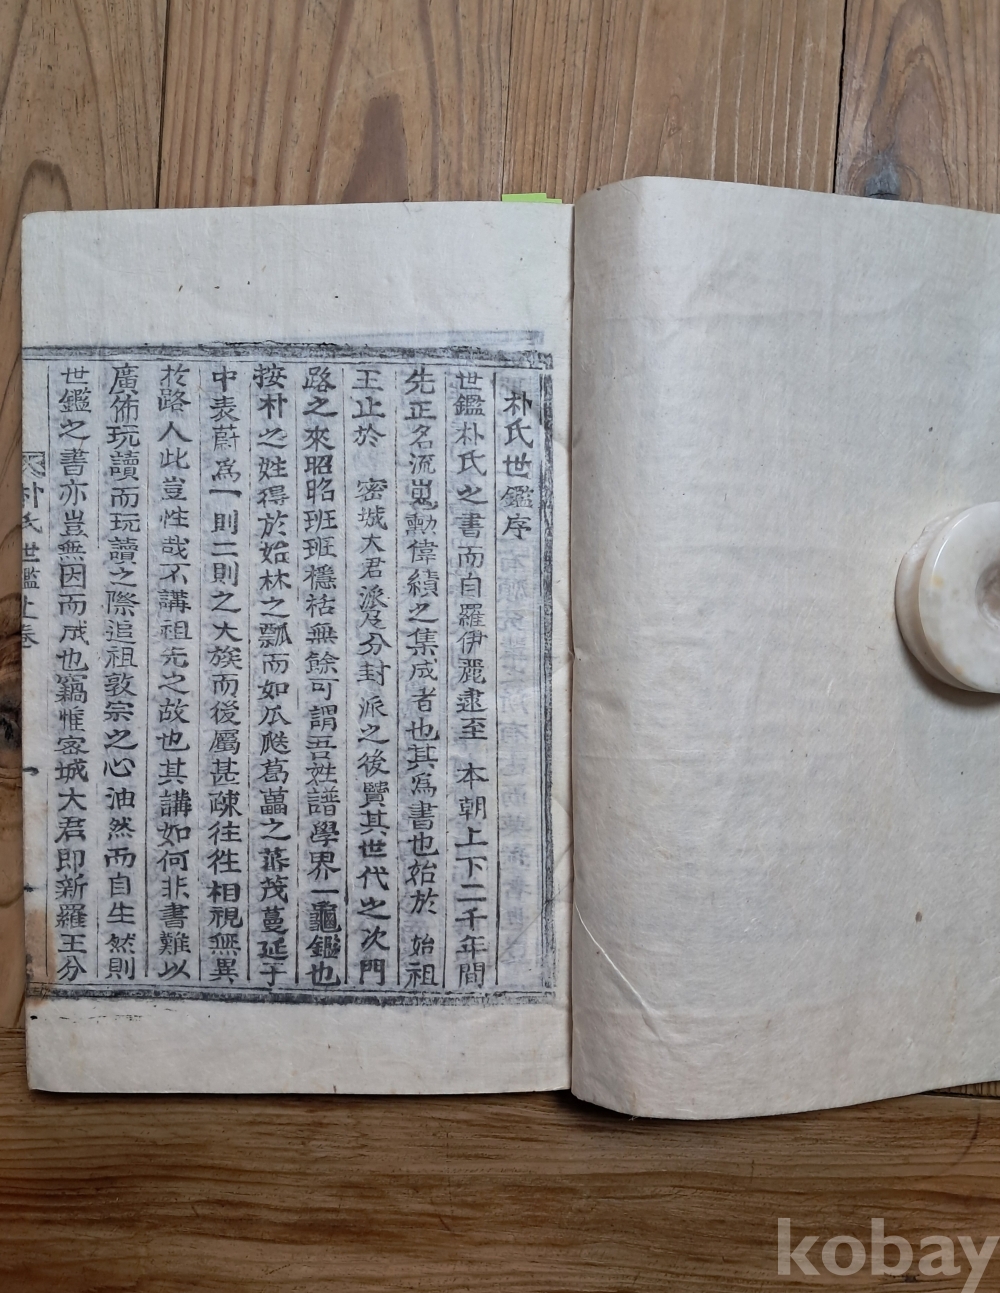 朴氏世鑑序
世鑑朴氏之書而自羅伊麗逮至 本朝上下二千年間
先正名流嵬勳偉績之集成者也其爲書也始於 始祖
王止於 密城大君派及分封派之後贒其世代之次門
路之來昭昭班班穩祜無餘可謂吾姓譜學界一龜鑑也
按朴之姓得於始林之瓢而如瓜瓞葛藟之蕃茂蔓延于
中表蔚爲一則二則之大族而後屬甚疎往徃相視無異
於路人此豈性哉不講祖先之故也其講如何非書難以
廣佈玩讀而玩讀之際追祖敦宗之心油然而自生然則
世鑑之書亦豈無因而成也竊惟密城大君即新羅王分
朴氏世鑑上卷 一
kobay